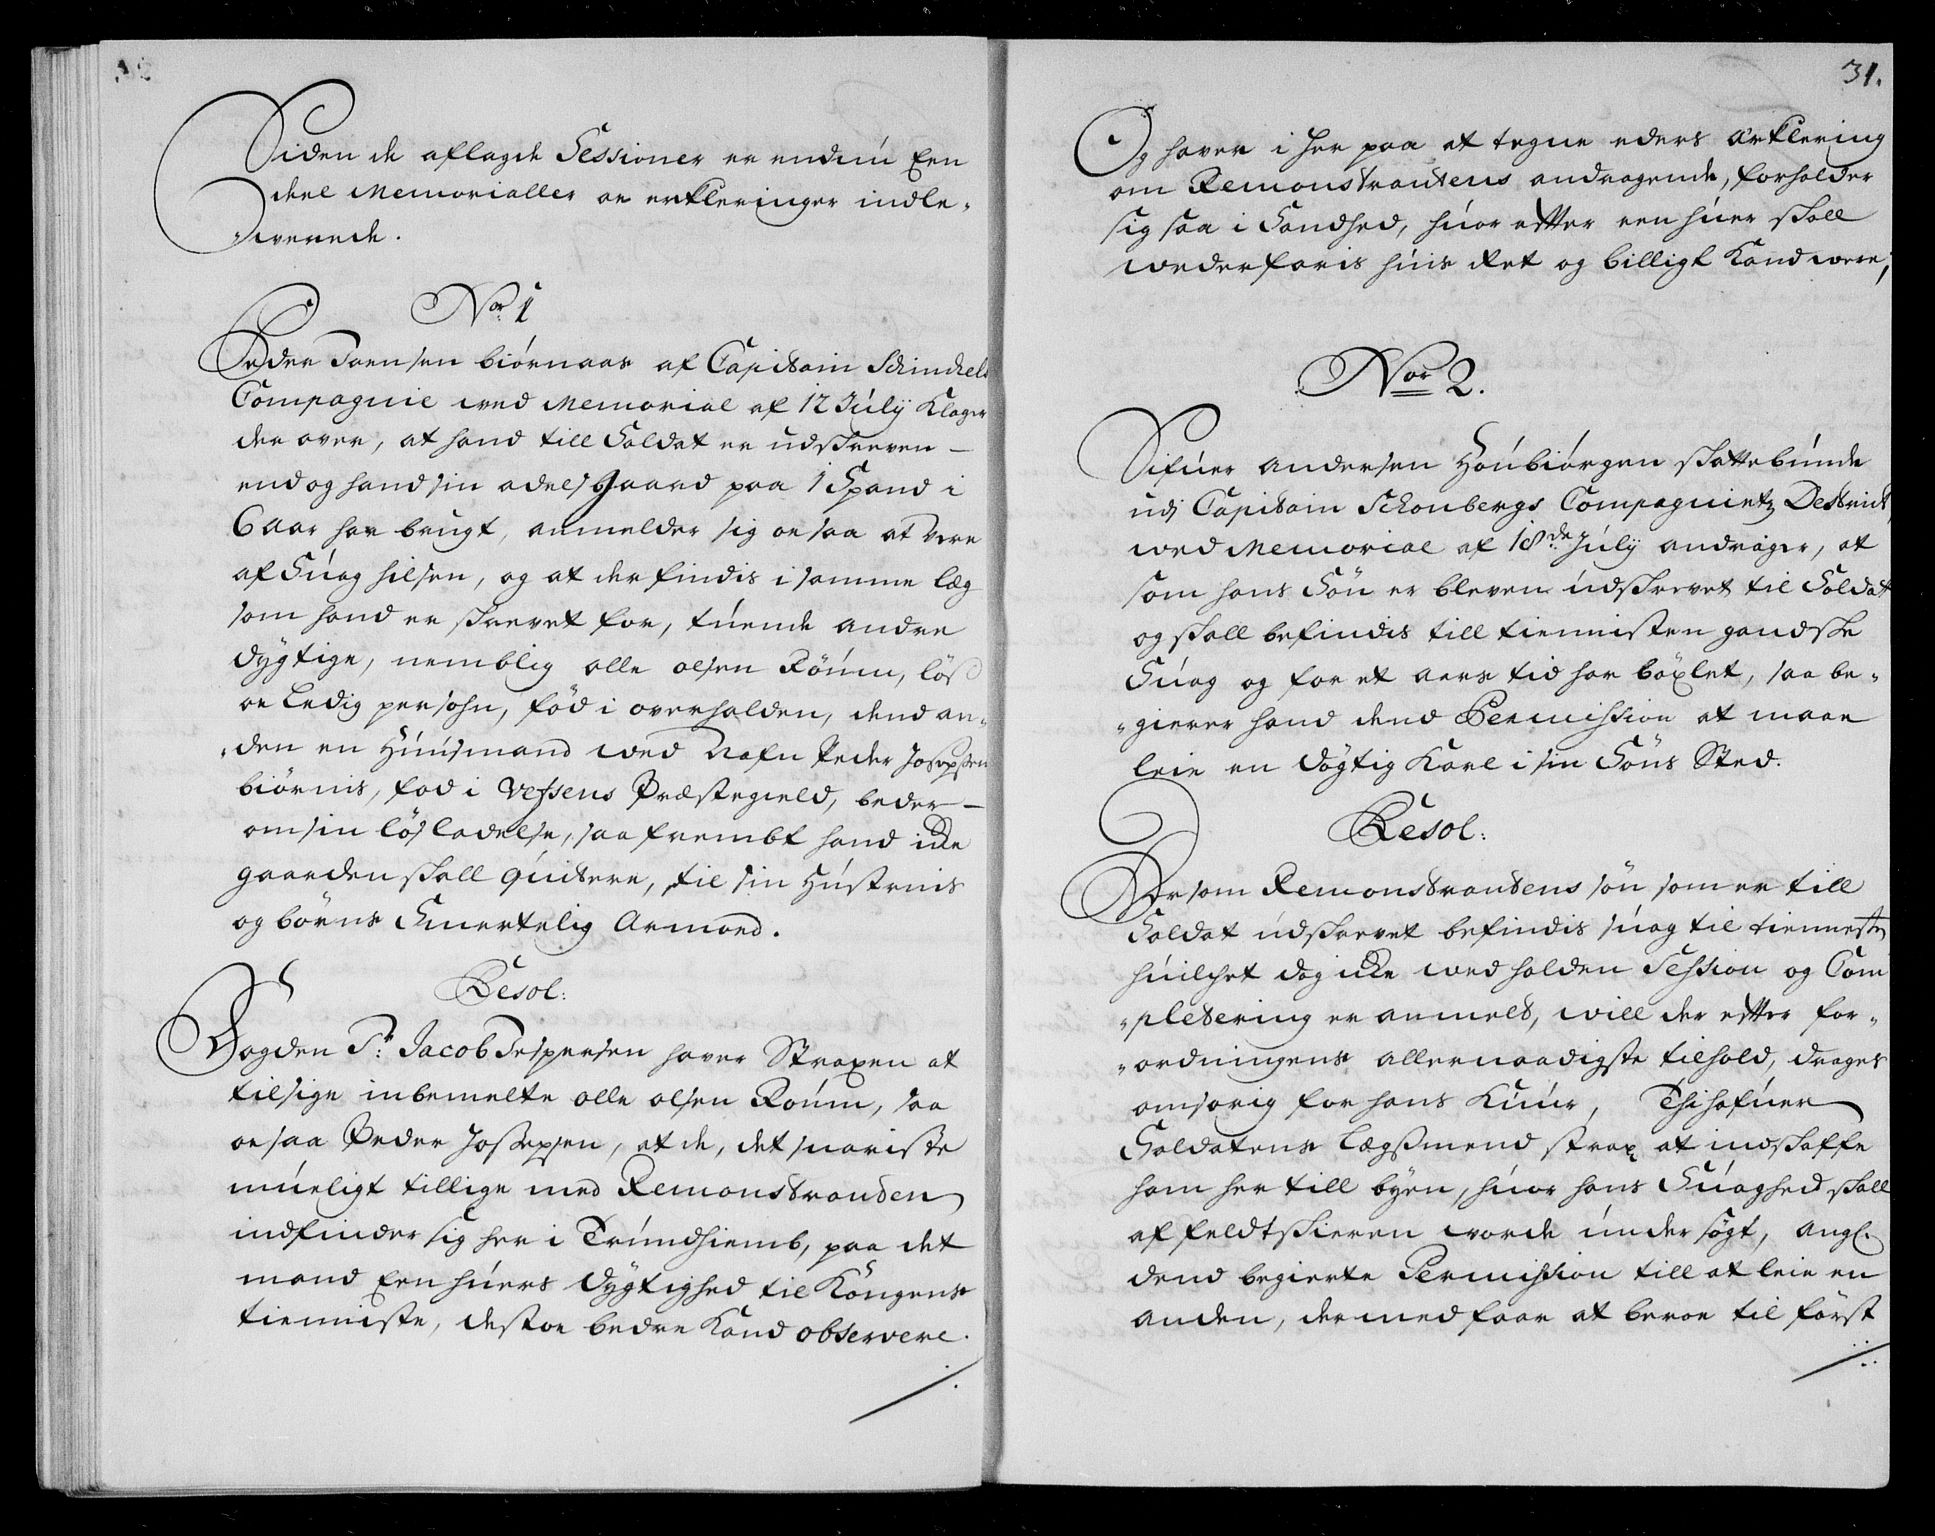 Siden de aflagde Sessioner er endnu Een
deel Memorialler oc erkleringer indle-
-werede.
No: 1
Peder Joensen biørnaas af Capitain Schinckels
Compagnie wed Memorial af 12 July Klager
der over, at hand till Soldat er udskreven
endog hand sin adels Gaard paa 1 Spand i
6 aar har brugt, anmelder sig oc saa at være
af Suag hilsen, og at der findis i samme læg
som hand er skrevet for, tuende andre
dygtige, nemblig olle olsen Röum, løs
oc Ledig persohn, fød i overhalden, dend an-
-den en Huusmand wed Nafn Peder Josepsen
biørnis, fød i Vefsens Præstegield, beder
om sin løsladelse, saafrembt hand icke
gaarden skall quitere, til sin Hustruis
og børns Smertelig Armoed.
Resol:
Fogden Sr: Jacob Jespersen haver Straxen at
tilsige inbemelte olle olsen Roum, saa
oc saa Peder Josepsen, at de, det snariste
mueligt tillige med Remonstranden
indfinder sig her i Trundhiemb, paa det
mand Een huers dygtighed til Kongens
tienniste, destoe bedre Kand observere.
31.
Og haver i her paa at tegne eders ærklering
om Remonstrantens andragende, forholder
sig saa i Sandhed, huor effter een huer skall
wederfaris huis Ret og billigt Kand were,
No: 2.
Sifuer andersen Houbiørgen skattebunde
udj Capitain Schonbergs Compagnietz Destrict,
wed Memorial af 18de July andrager, at
som hans Søn er bleven udskrevet til Soldat
og skall befindis till tiennisten gandske
Suag og for et aars tid har böxlet, saa be-
-gierer hand dend Permission at maae
leie en dögtig Karl i sin Söns Sted.
Resol:
Dersom Remonstrantens søn som er till
Soldat udskrevet befindis suag til tienneste
huilchet dog icke wed holden Session og Com
-pletering er anmelt, will der effter for-
-ordningens allernaadigste tilhold, drages
omsorig for hans Kuur, Thi hafuer
Soldatens Lægsmend strax at indskaffe
ham her till byen, huor hans Suaghed skall
af feldtskieren worde under søgt, angl.
dend begierte Permission till at leie en
anden, dermed faar at beroe til først